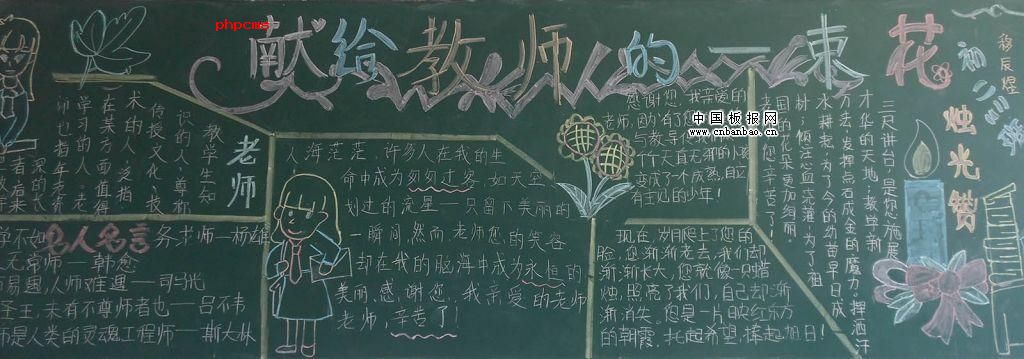 phpcms
献给教师的一束花
初二三班
中国板报网
www.cnbanbao.cn
老师
教学生知
识的人,尊称
传授文化、技
术的人,泛指
在某方面值得
人海茫茫,许多人在我的生
命中成为匆匆过客,如天空
划过的流星——只留下美丽的
一瞬间,然而,老师,您的笑容
却在我的脑海中成为永恒的
美丽。感谢您,我亲爱的老师
老师,辛苦了!
感谢您,我亲爱的
老师,因为有了您
变成了一个成熟,自立
有主见的少年!
国的花朵更加绚丽。
老师,您辛苦了!
现在,岁月爬上了您的
脸,您渐渐老去,我们却
渐渐长大,您就像一只蜡
烛,照亮了我们,自己却渐
渐消失,您是一片映红东方
的朝霞。托起希望,捧起旭日!
烛光赞
三尺讲台,是您施展
才华的天地;教学新
方法,发挥点石成金的魔力,挥洒汗
水耕耘,为了今的幼苗早日成
树;倾注心血浇灌,为了祖
名人名言
学不如 务求师——杨雄
无常师——韩愈
易遇,人师难遭——司马光
圣王,未有不尊师者也——吕不韦
师是人类的灵魂工程师——斯大林